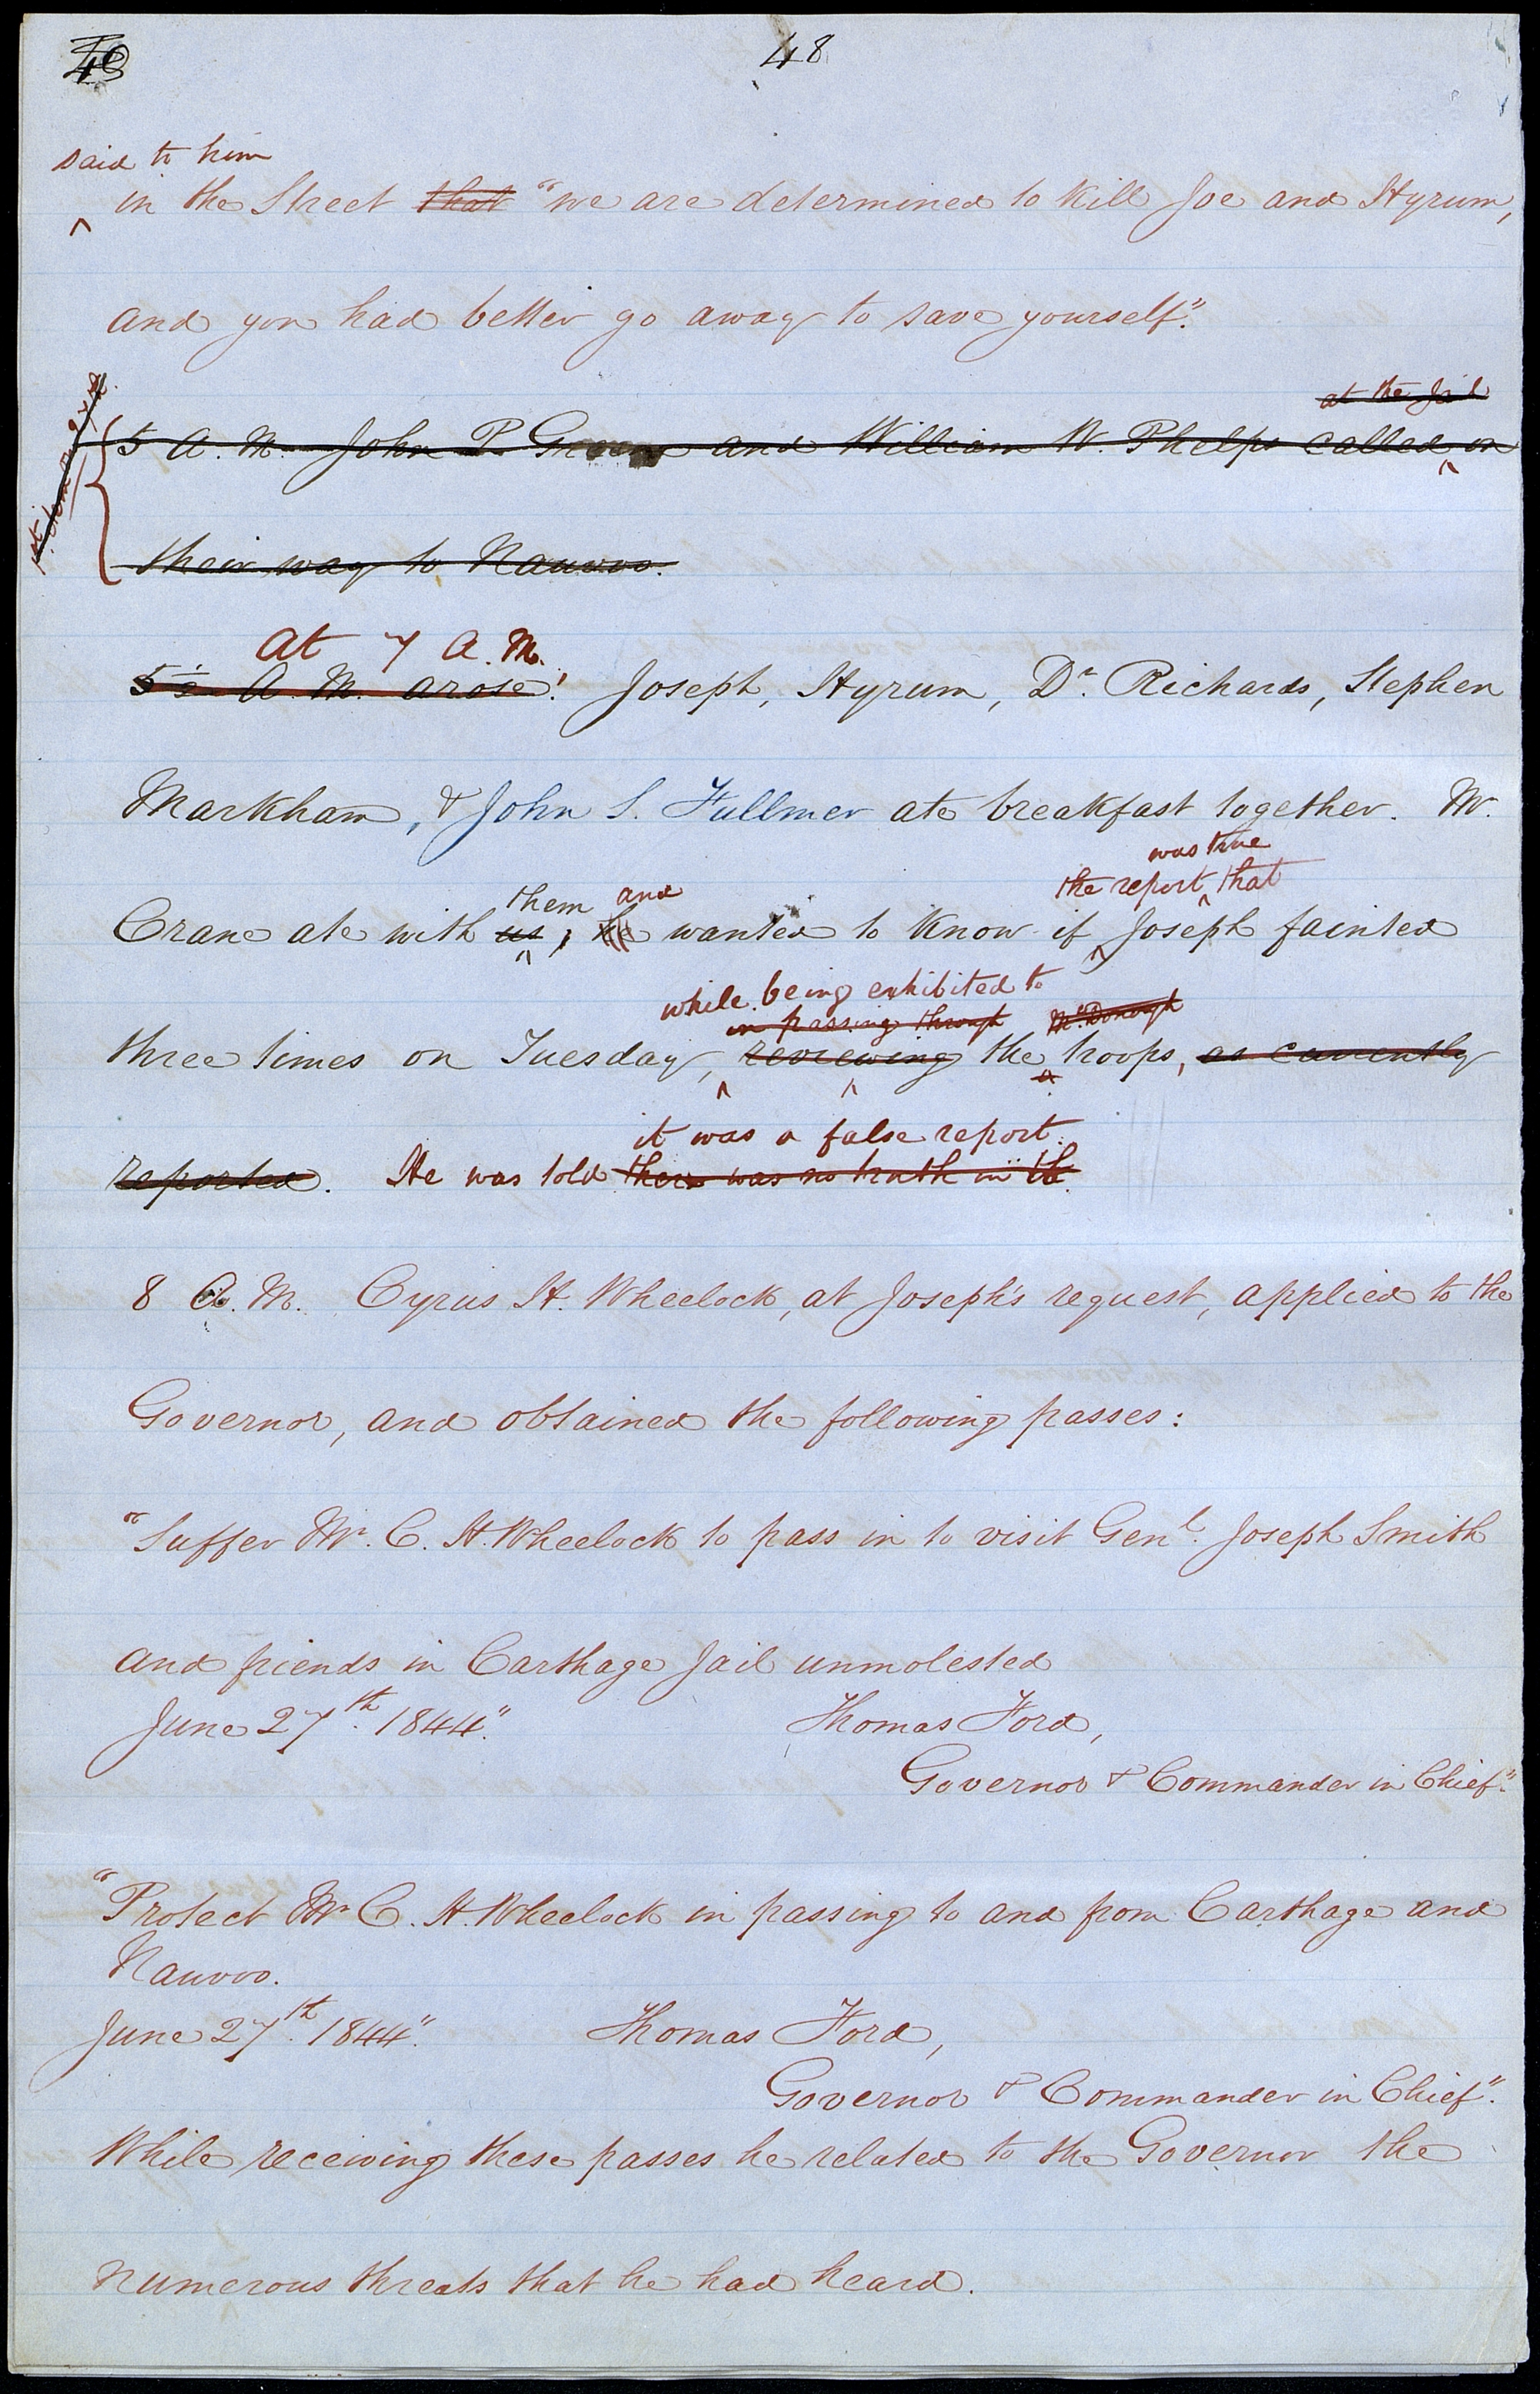 48
said to him
in the Street that "we are determined to kill Joe and Hyrum,
and you had better go away to save yourself."
at the Jail
5 A. M. John P. Green and William W. Phelps called on
their way to Nauvoo.
at 7 A. M.
5½ A. M. arose. Joseph, Hyrum, Dr. Richards, Stephen
Markham, & John S. Fullmer ate breakfast together. Mr.
was true
them and the report that
Crane ate with us, he wanted to know if Joseph fainted
while being exhibited to
in passing through McDonough
three times on Tuesday, reviewing the troops, as currently
it was a false report.
reported. He was told there was no truth in it.
8 A. M. Cyrus H. Wheelock, at Joseph's request, applied to the
Governor, and obtained the following passes:
"Suffer Mr. C. H. Wheelock to pass in to visit Genl. Joseph Smith
and friends in Carthage Jail unmolested
June 27th. 1844." Thomas Ford,
Governor & Commander in Chief."
"Protect Mr C. H. Wheelock in passing to and from Carthage and
Nauvoo.
June 27th. 1844." Thomas Ford,
Governor & Commander in Chief."
While receiving these passes he related to the Governor the
numerous threats that he had heard.